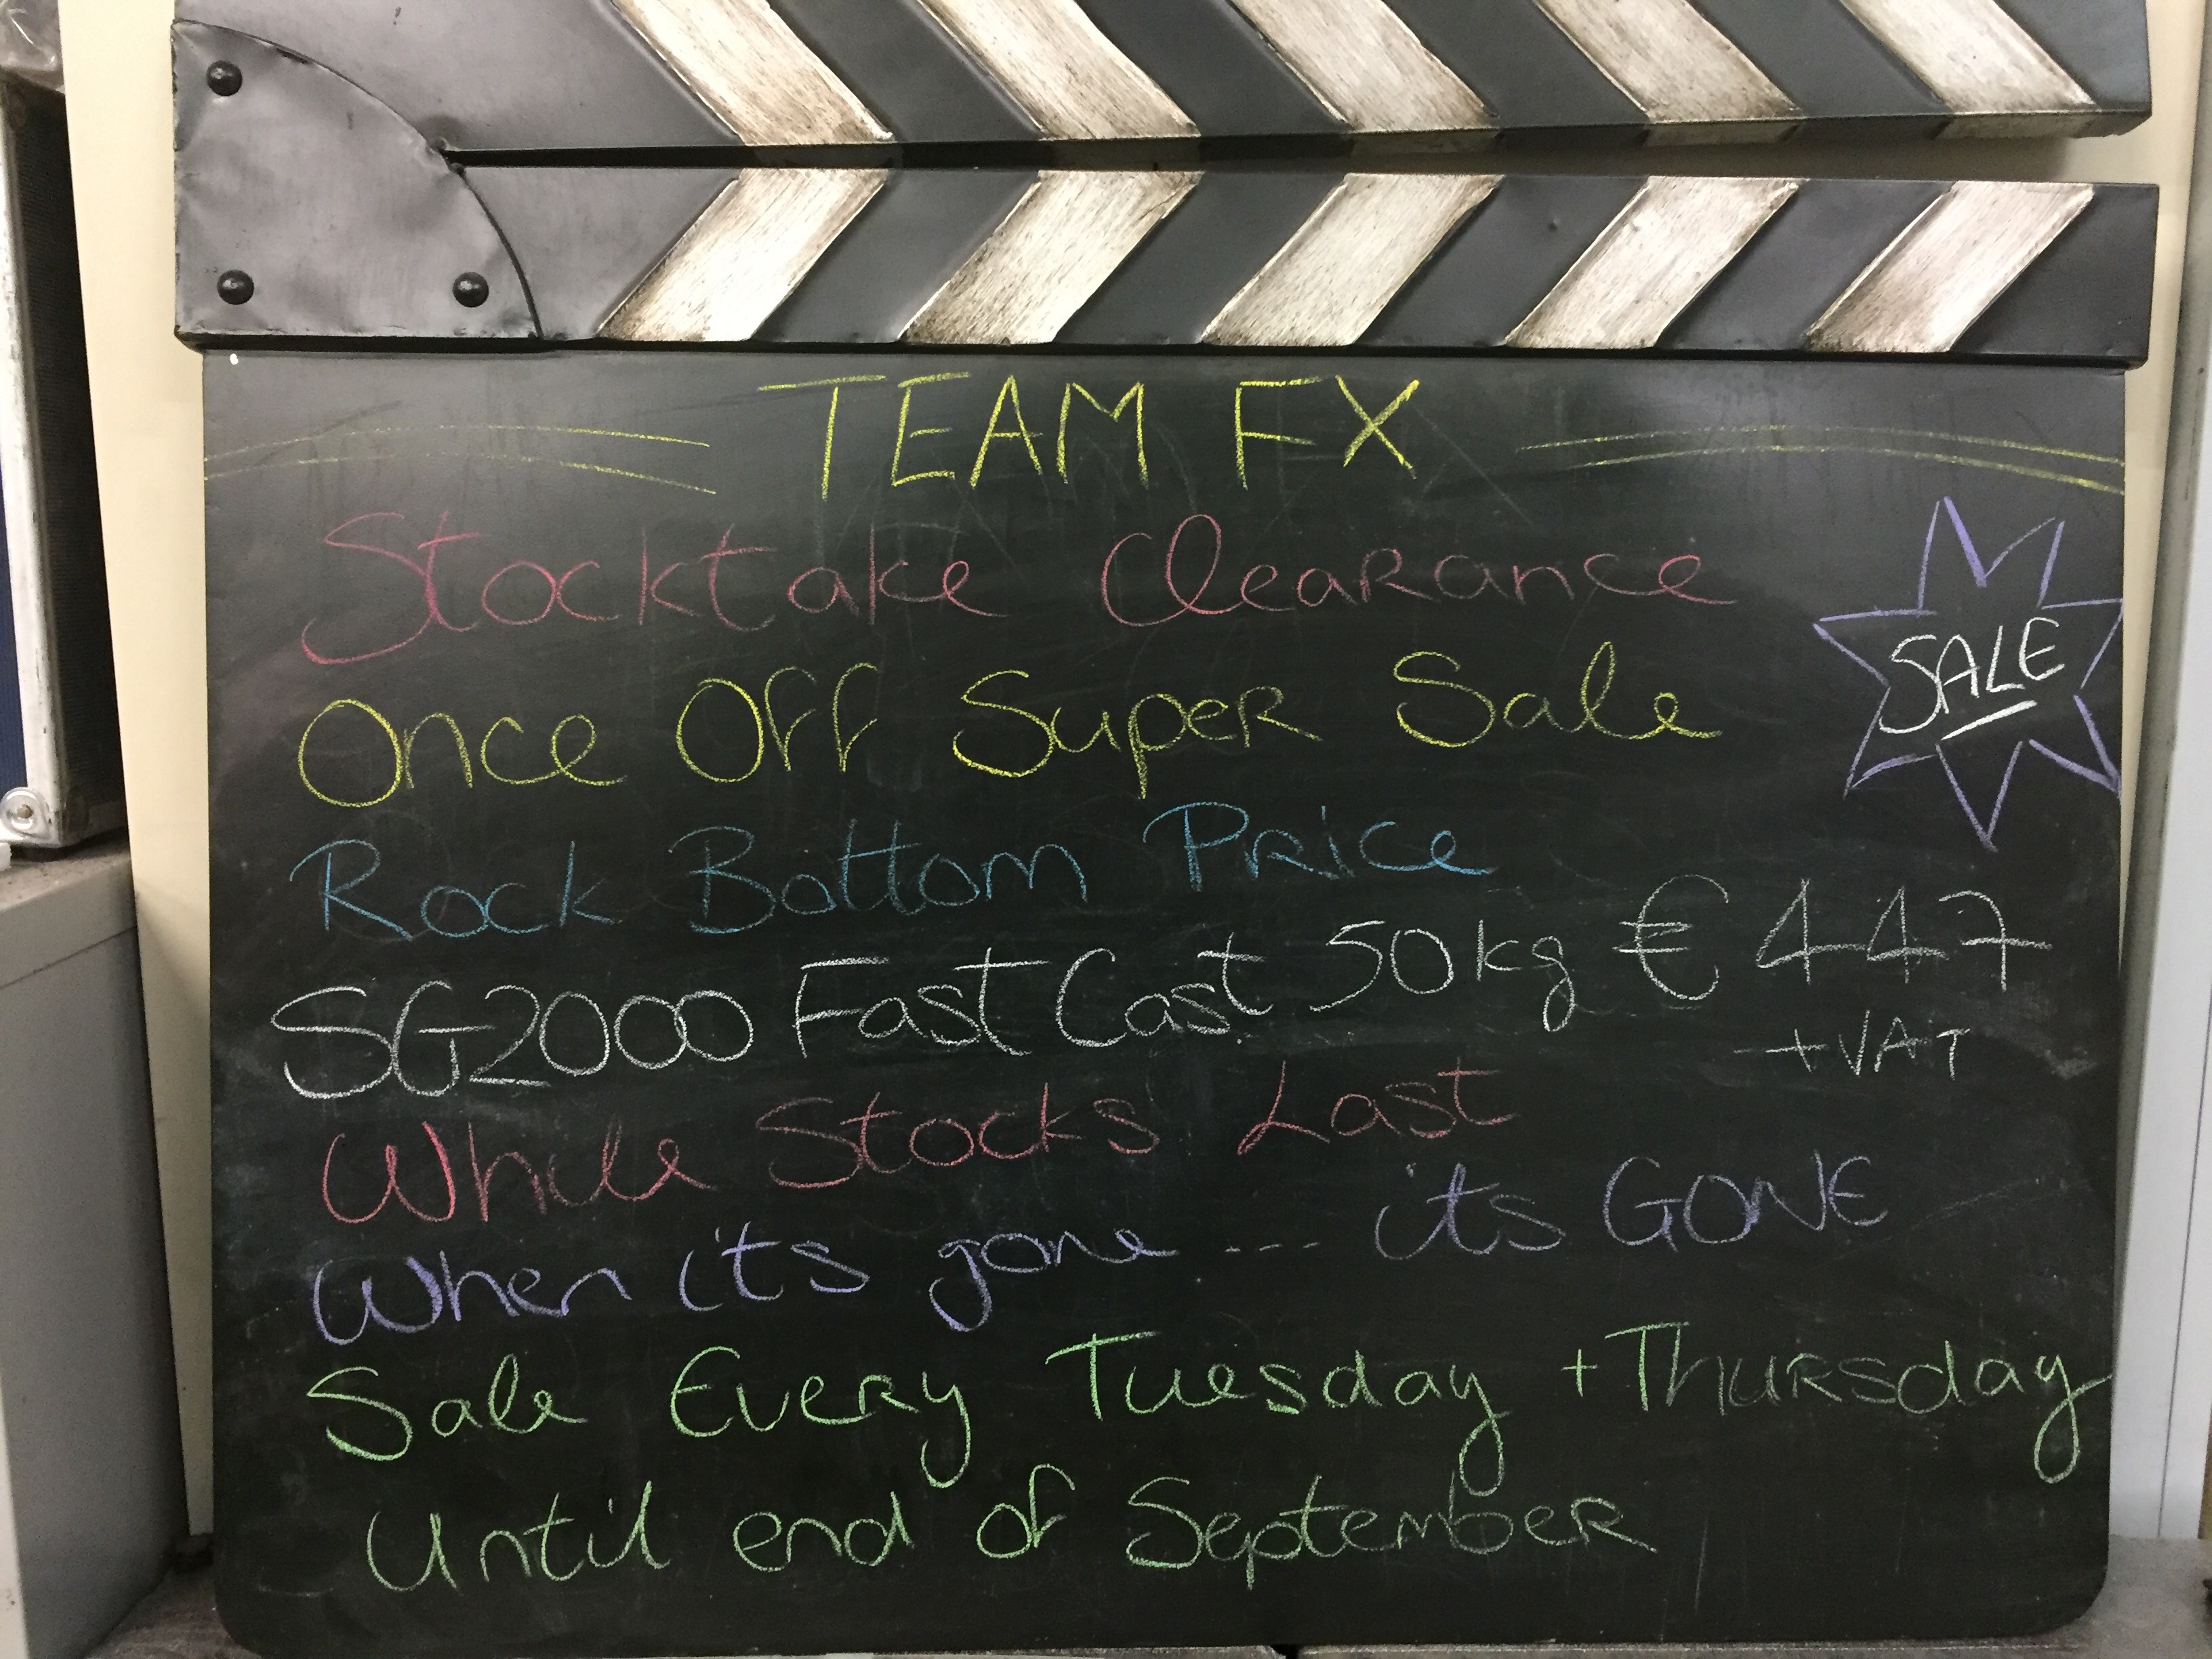 TEAM FX
Stocktake Clearance
SALE
Once Off Super Sale
Rock Bottom Price
SG2000 Fast Cast 50kg € 447
+VAT
While Stocks Last
When it's gone --- it's GONE
Sale Every Tuesday + Thursday
Until end of September